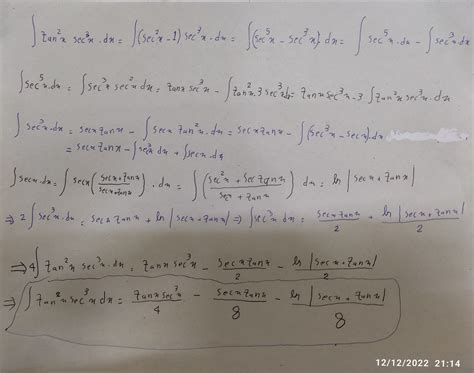 ∫ tan²x sec³x · dx = ∫ (sec²x − 1) sec³x · dx = ∫ (sec⁵x − sec³x) dx = ∫ sec⁵x · dx − ∫ sec³x dx
∫ sec⁵x · dx = ∫ sec³x sec²x dx = tanx sec³x − ∫ tan²x · 3 sec³x dx = tanx sec³x − 3 ∫ tan²x sec³x · dx
∫ sec³x · dx = secx tanx − ∫ secx tan²x · dx = secx tanx − ∫ (sec³x − secx) · dx
= secx tanx − ∫ sec³x dx + ∫ secx · dx
∫ secx · dx = ∫ secx ((secx + tanx)/(secx + tanx)) · dx = ∫ ((sec²x + secx tanx)/(secx + tanx)) dx = ln |secx + tanx|
⇒ 2 ∫ sec³x · dx = secx tanx + ln |secx + tanx| ⇒ ∫ sec³x · dx = (secx tanx)/2 + (ln |secx + tanx|)/2
⇒ 4 ∫ tan²x sec³x · dx = tanx sec³x − (secx tanx)/2 − (ln |secx + tanx|)/2
⇒ ∫ tan²x sec³x dx = (tanx sec³x)/4 − (secx tanx)/8 − (ln |secx + tanx|)/8
12/12/2022 21:14